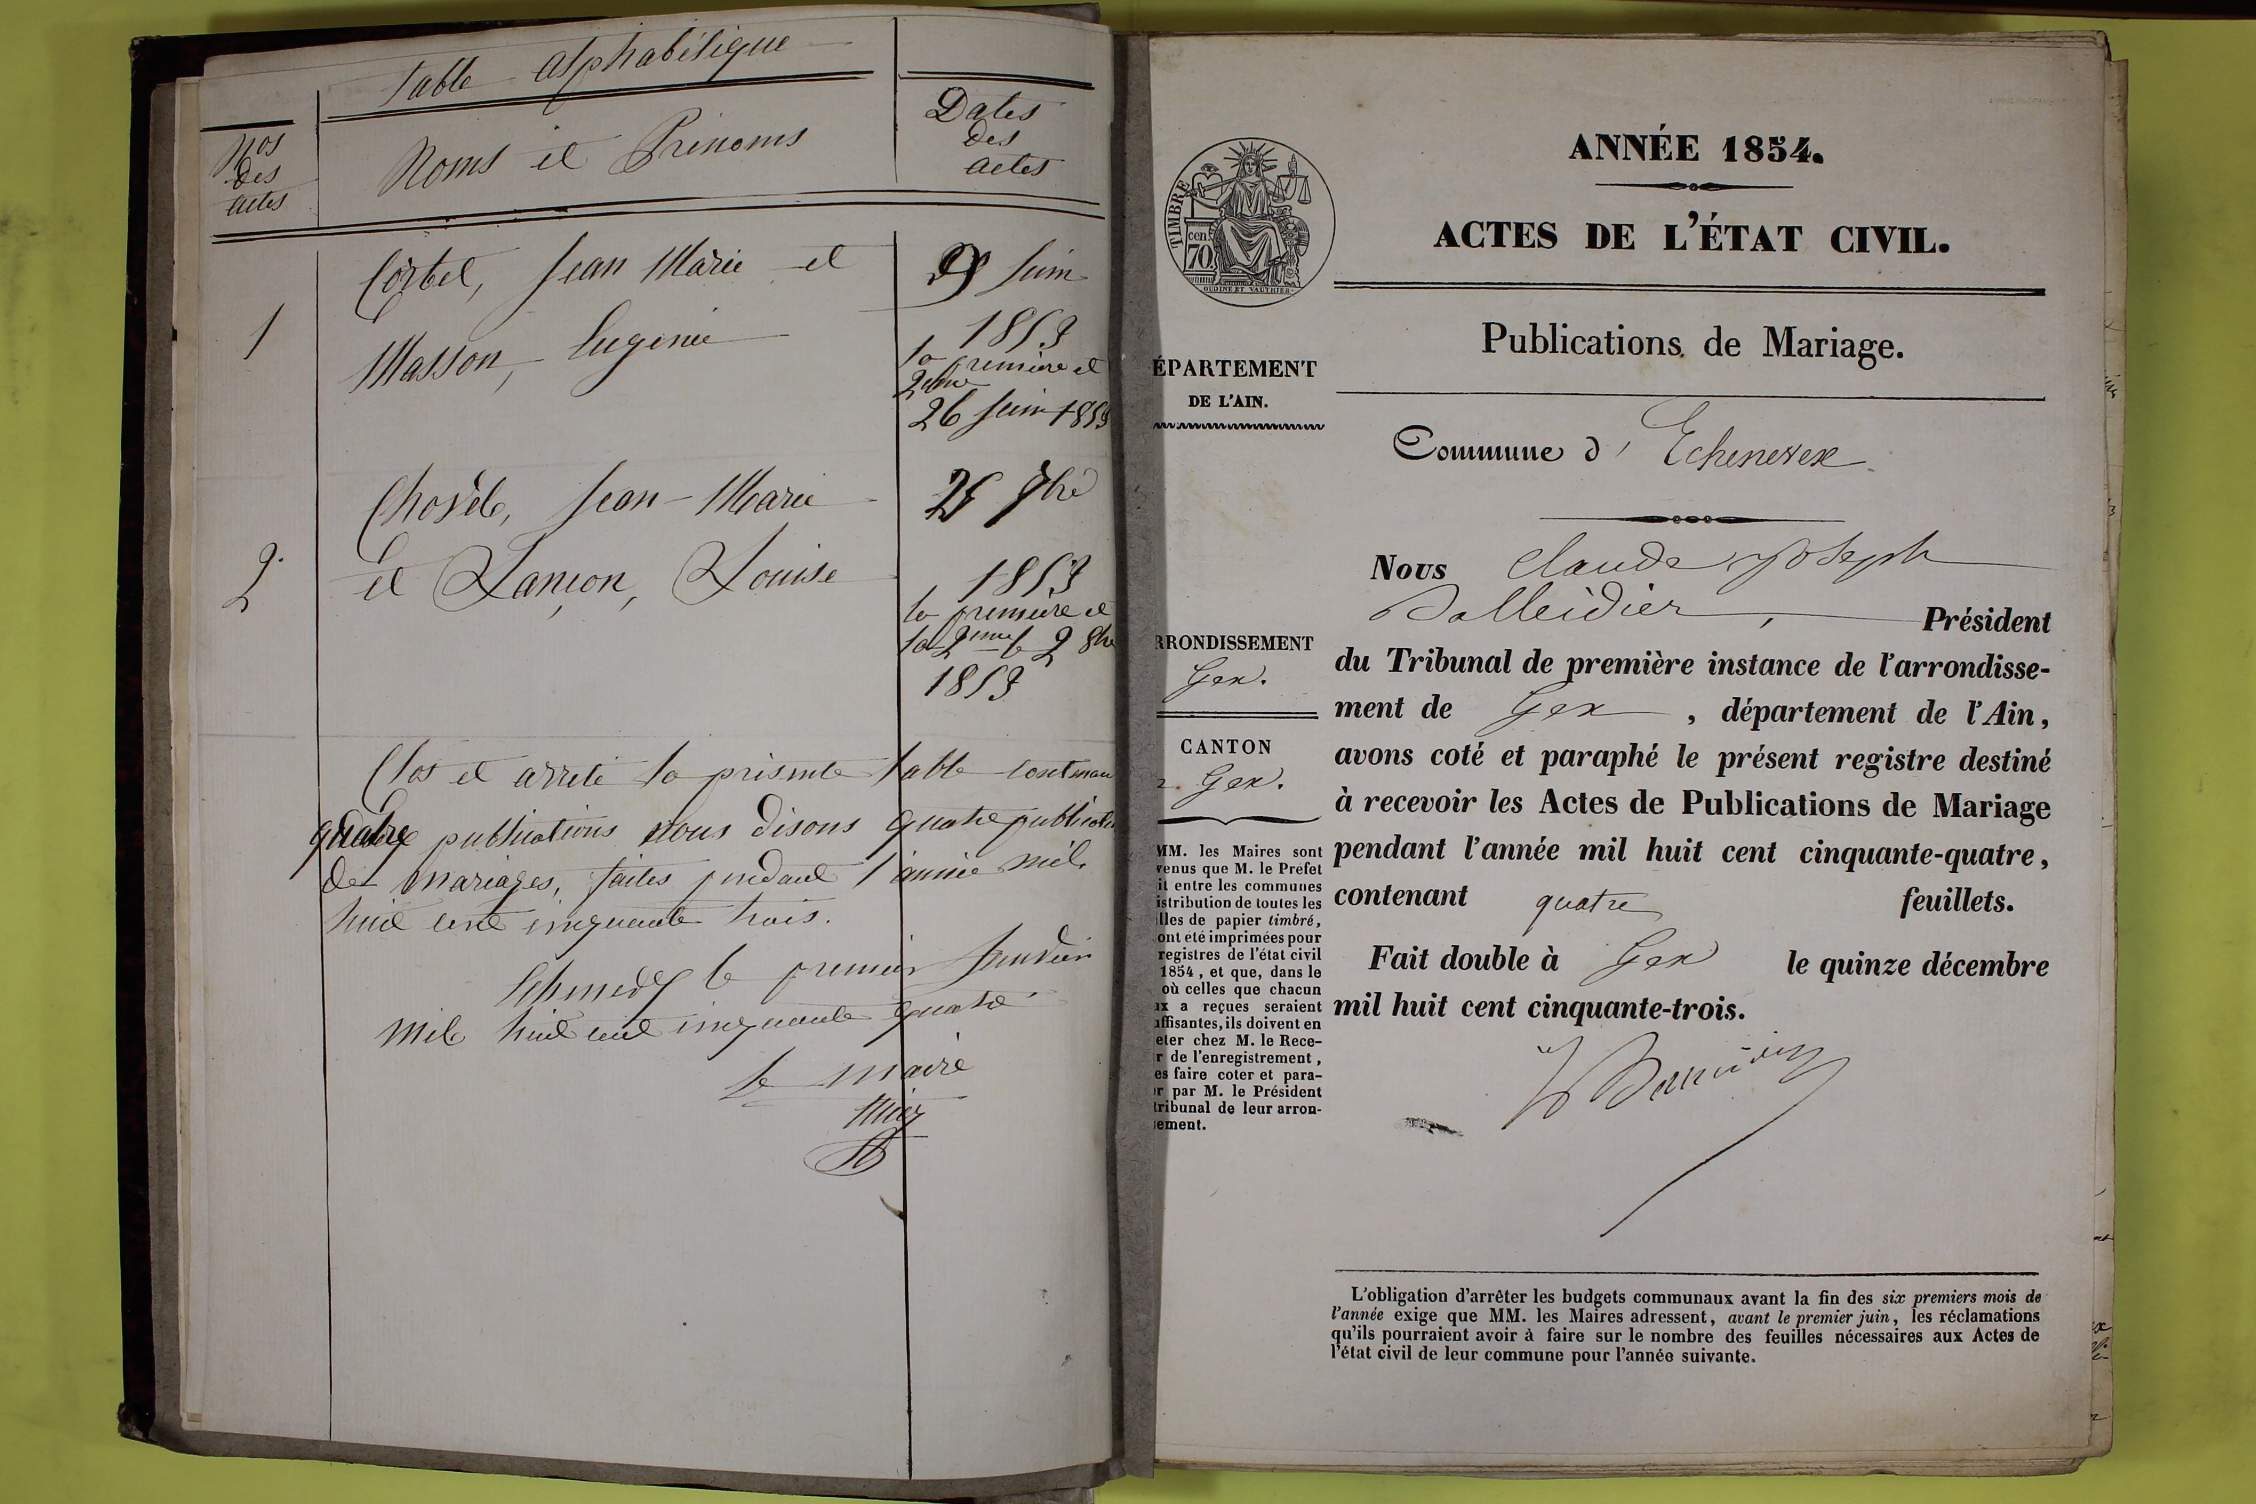 Table alphabétique
Nos
des
actes
Noms et Prénoms
Dates
des
actes
1
Corbet, Jean Marie et
Masson, Eugénie
Juin
1853
la première et
2eme
26 Juin 1853
2
Jean-Marie
et Lançon, Louise
25 7bre
1853
la première et
la 2eme le 2 8bre
1853
Clos et arreté la présente table contenan
quatre publications nous disons quatre publications
de mariages, faites pendant l'année mil
huit cent cinquante trois.
le premier Janvier
mil huit cent cinquante quatre
Le maire
TIMBRE
70
cen.
OUDINÉ ET VAUTHIER
ANNÉE 1854.
ACTES DE L'ÉTAT CIVIL.
Publications de Mariage.
ÉPARTEMENT
DE L'AIN.
RRONDISSEMENT
Gex.
CANTON
Gex.
MM. les Maires sont
venus que M. le Préfet
it entre les communes
istribution de toutes les
lles de papier timbré,
ont été imprimées pour
registres de l'état civil
1854, et que, dans le
où celles que chacun
ux a reçues seraient
uffisantes, ils doivent en
eter chez M. le Rece-
r de l'enregistrement,
es faire coter et para-
r par M. le Président
tribunal de leur arron-
ement.
Commune d' Echenevex
Nous Claude Joseph
Balleidier, Président
du Tribunal de première instance de l'arrondisse-
ment de Gex, département de l'Ain,
avons coté et paraphé le présent registre destiné
à recevoir les Actes de Publications de Mariage
pendant l'année mil huit cent cinquante-quatre,
contenant quatre feuillets.
Fait double à Gex le quinze décembre
mil huit cent cinquante-trois.
L'obligation d'arrêter les budgets communaux avant la fin des six premiers mois de
l'année exige que MM. les Maires adressent, avant le premier juin, les réclamations
qu'ils pourraient avoir à faire sur le nombre des feuilles nécessaires aux Actes de
l'état civil de leur commune pour l'année suivante.